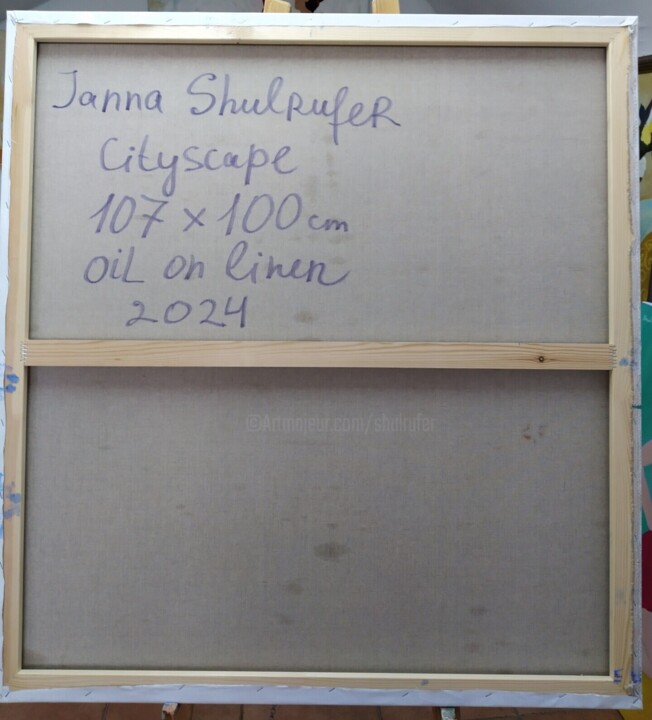 Janna Shulrufer
Cityscape
107 x 100 cm
oil on linen
2024
©Artmajeur.com/shulrufer